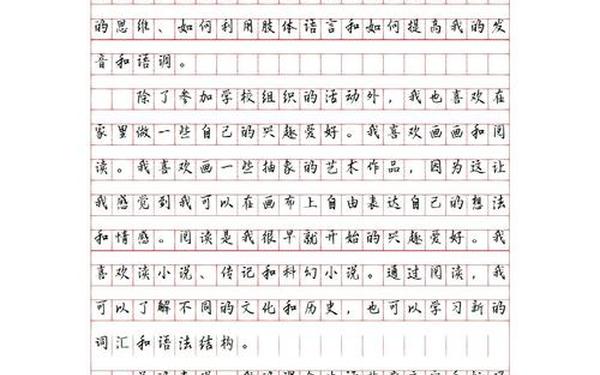 的思维、如何利用肢体语言和如何提高我的发
音和语调。
除了参加学校组织的活动外，我也喜欢在
家里做一些自己的兴趣爱好。我喜欢画画和阅
读。我喜欢画一些抽象的艺术作品，因为这让
我感觉到我可以在画布上自由表达自己的想法
和情感。阅读是我很早就开始的兴趣爱好。我
喜欢读小说、传记和科幻小说。通过阅读，我
可以了解不同的文化和历史，也可以学习新的
词汇和语法结构。